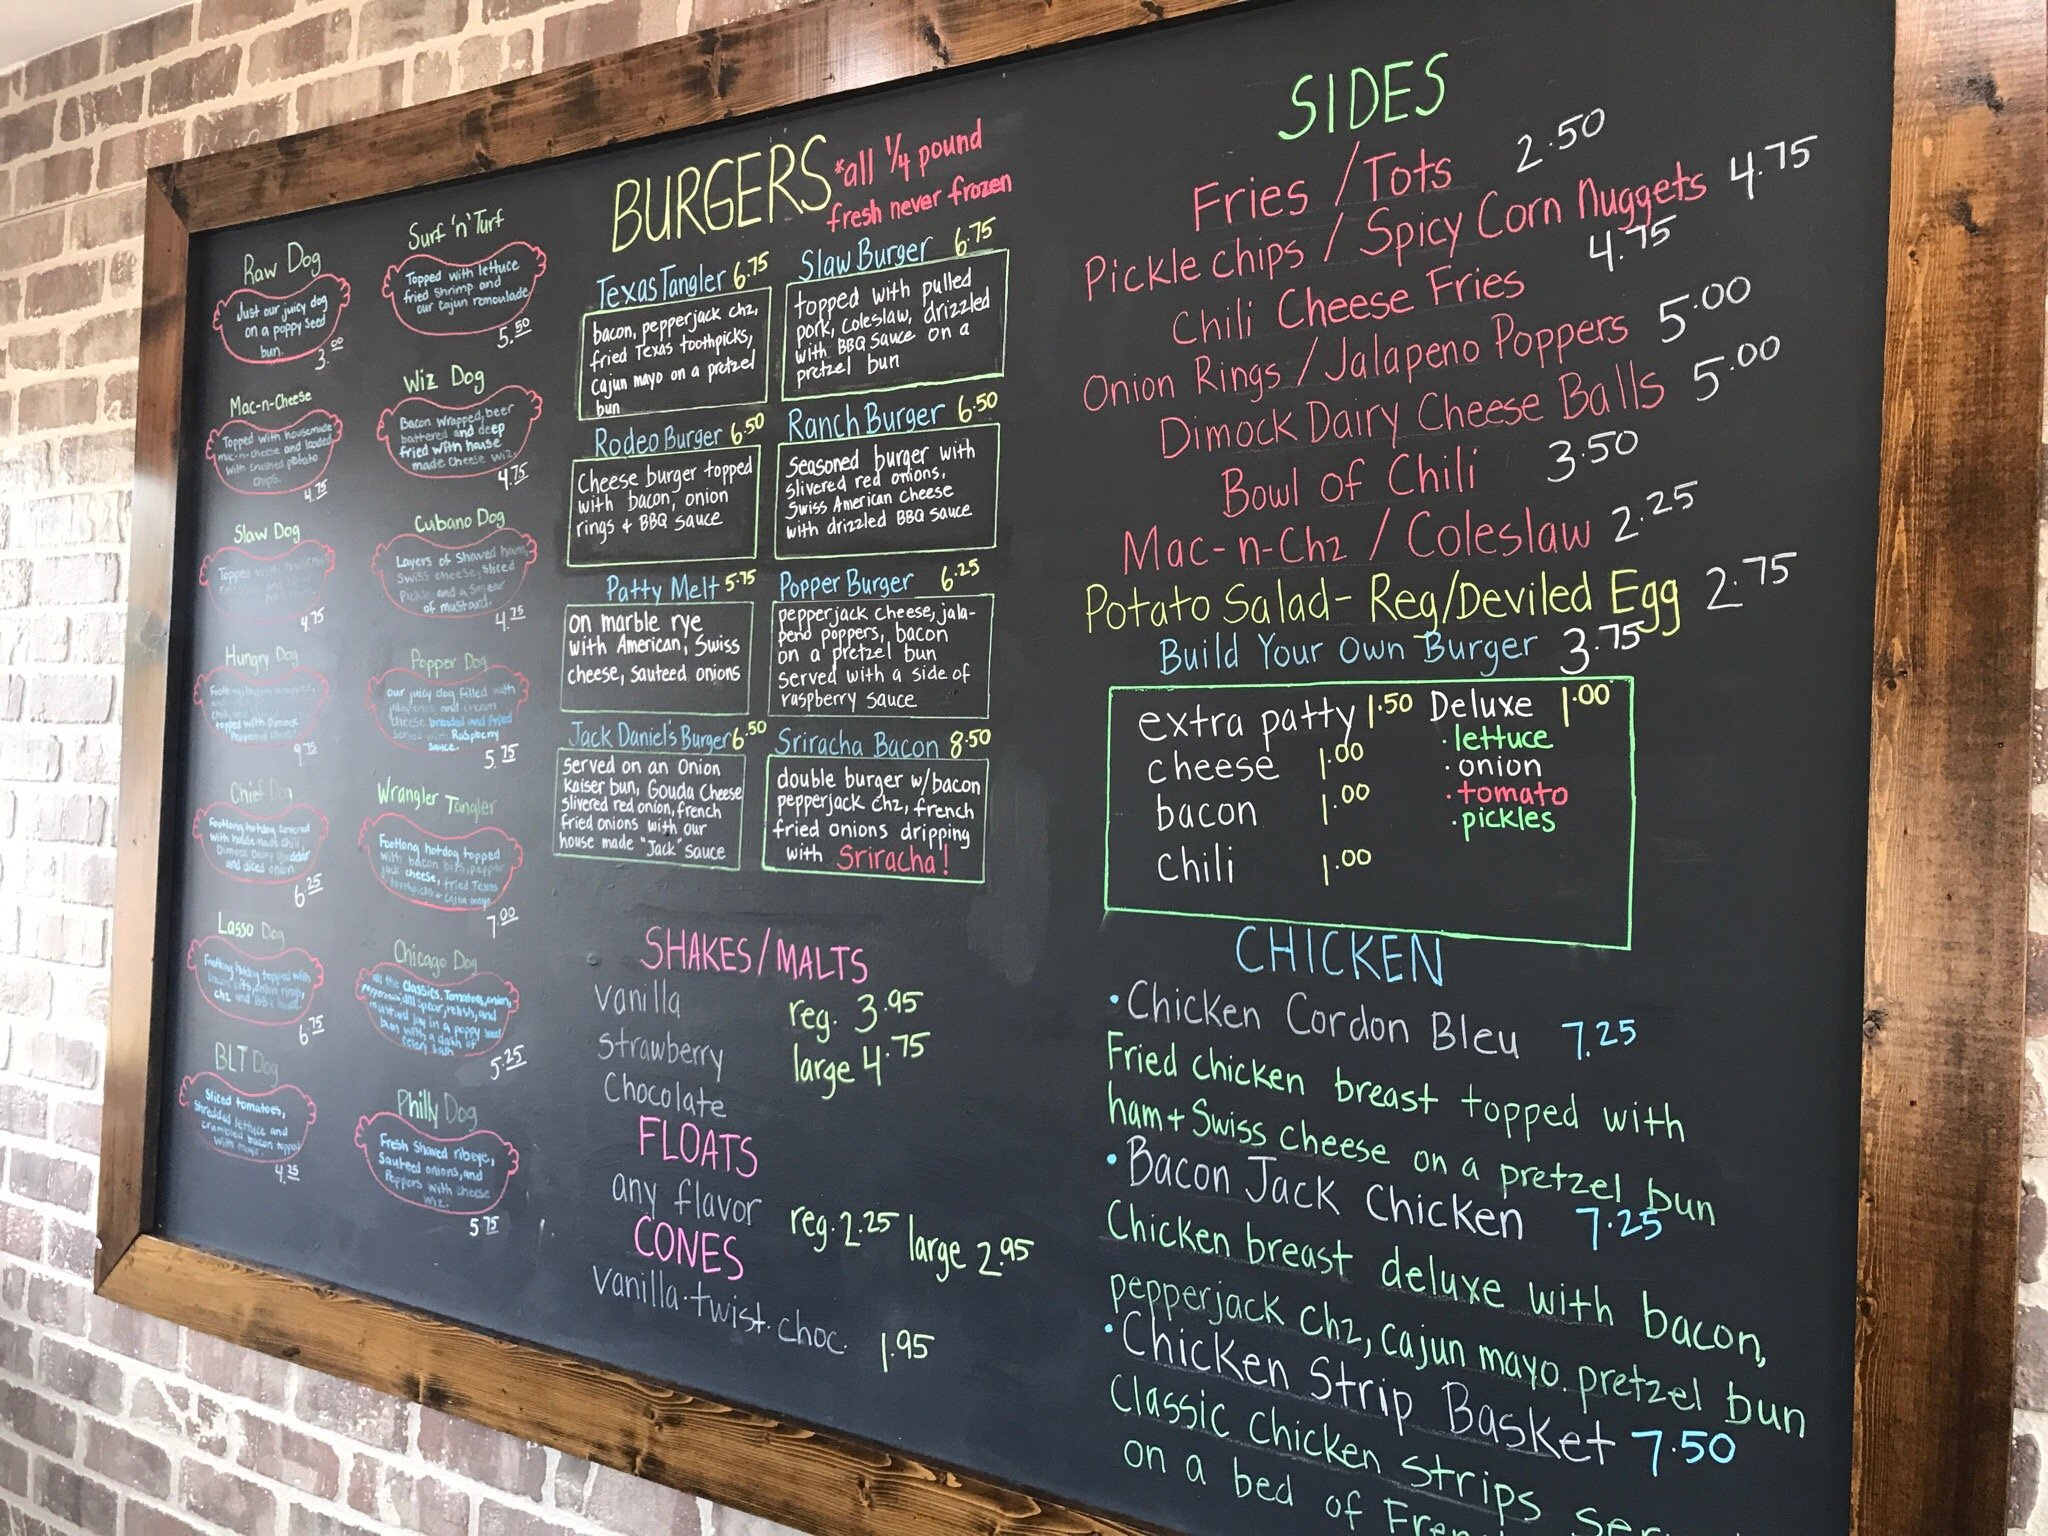 Raw Dog
Just our juicy dog
on a poppy seed
bun.
3.00
Mac-n-Cheese
Topped with housemade
mac-n-cheese and loaded
with crushed potato
chips.
4.75
Slaw Dog
Topped with
4.75
Hungry Dog
Footlong bacon wrapped,
topped with Dimock
9.75
Chief Dog
Footlong hotdog covered
with house made chili,
Dimock Dairy cheddar
and diced onion
6.25
Lasso Dog
Footlong hotdog topped with
bacon bits, onion rings,
chz and BBQ sauce
6.75
BLT Dog
Sliced tomatoes,
shredded lettuce and
crumbled bacon topped
with mayo.
4.25
Surf 'n' Turf
Topped with lettuce
fried shrimp and
our cajun remoulade
5.50
Wiz Dog
Bacon wrapped, beer
battered and deep
fried with house
made cheese wiz.
4.75
Cubano Dog
Layers of shaved ham,
Swiss cheese, sliced
Pickle and a smear
of mustard.
4.75
Popper Dog
Our juicy dog filled with
jalapenos and cream
cheese breaded and fried
served with Raspberry
sauce.
5.75
Wrangler Tangler
Footlong hotdog topped
with bacon bits, pepper
jack cheese, fried Texas
toothpicks + cajun mayo
7.00
Chicago Dog
all the classics. Tomatoes, onion,
pepperoncini, dill spear, relish, and
mustard lay in a poppy seed
bun with a dash of
celery salt
5.25
Philly Dog
Fresh shaved ribeye,
Sauteed onions, and
Peppers with cheese
wiz.
5.75
BURGERS
*all 1/4 pound
fresh never frozen
Texas Tangler 6.75
bacon, pepperjack chz,
fried Texas toothpicks,
cajun mayo on a pretzel
bun
Slaw Burger 6.75
topped with pulled
pork, coleslaw, drizzled
with BBQ sauce on a
pretzel bun
Rodeo Burger 6.50
Cheese burger topped
with bacon, onion
rings & BBQ sauce
Ranch Burger 6.50
Seasoned burger with
slivered red onions,
Swiss American cheese
with drizzled BBQ sauce
Patty Melt 5.75
on marble rye
with American, Swiss
cheese, sauteed onions
Popper Burger 6.25
pepperjack cheese, jala-
peno poppers, bacon
on a pretzel bun
served with a side of
raspberry sauce
Jack Daniel's Burger 6.50
served on an Onion
Kaiser bun, Gouda Cheese
slivered red onion, french
fried onions with our
house made "Jack" sauce
Sriracha Bacon 8.50
double burger w/bacon
pepperjack chz, french
fried onions dripping
with Sriracha!
SHAKES/MALTS
vanilla
strawberry
Chocolate
reg. 3.95
large 4.75
FLOATS
any flavor
reg. 2.25 large 2.95
CONES
vanilla·twist·choc. 1.95
SIDES
Fries/Tots 2.50
Pickle chips / Spicy Corn Nuggets 4.75
Chili Cheese Fries 4.75
Onion Rings / Jalapeno Poppers 5.00
Dimock Dairy Cheese Balls 5.00
Bowl of Chili 3.50
Mac-n-Chz / Coleslaw 2.25
Potato Salad- Reg/Deviled Egg 2.75
Build Your Own Burger 3.75
extra patty 1.50
cheese 1.00
bacon 1.00
chili 1.00
Deluxe 1.00
·lettuce
·onion
·tomato
·pickles
CHICKEN
·Chicken Cordon Bleu 7.25
Fried chicken breast topped with
ham + Swiss cheese on a pretzel bun
·Bacon Jack Chicken 7.25
Chicken breast deluxe with bacon,
pepperjack chz, cajun mayo. pretzel bun
·Chicken Strip Basket 7.50
Classic chicken strips
on a bed of